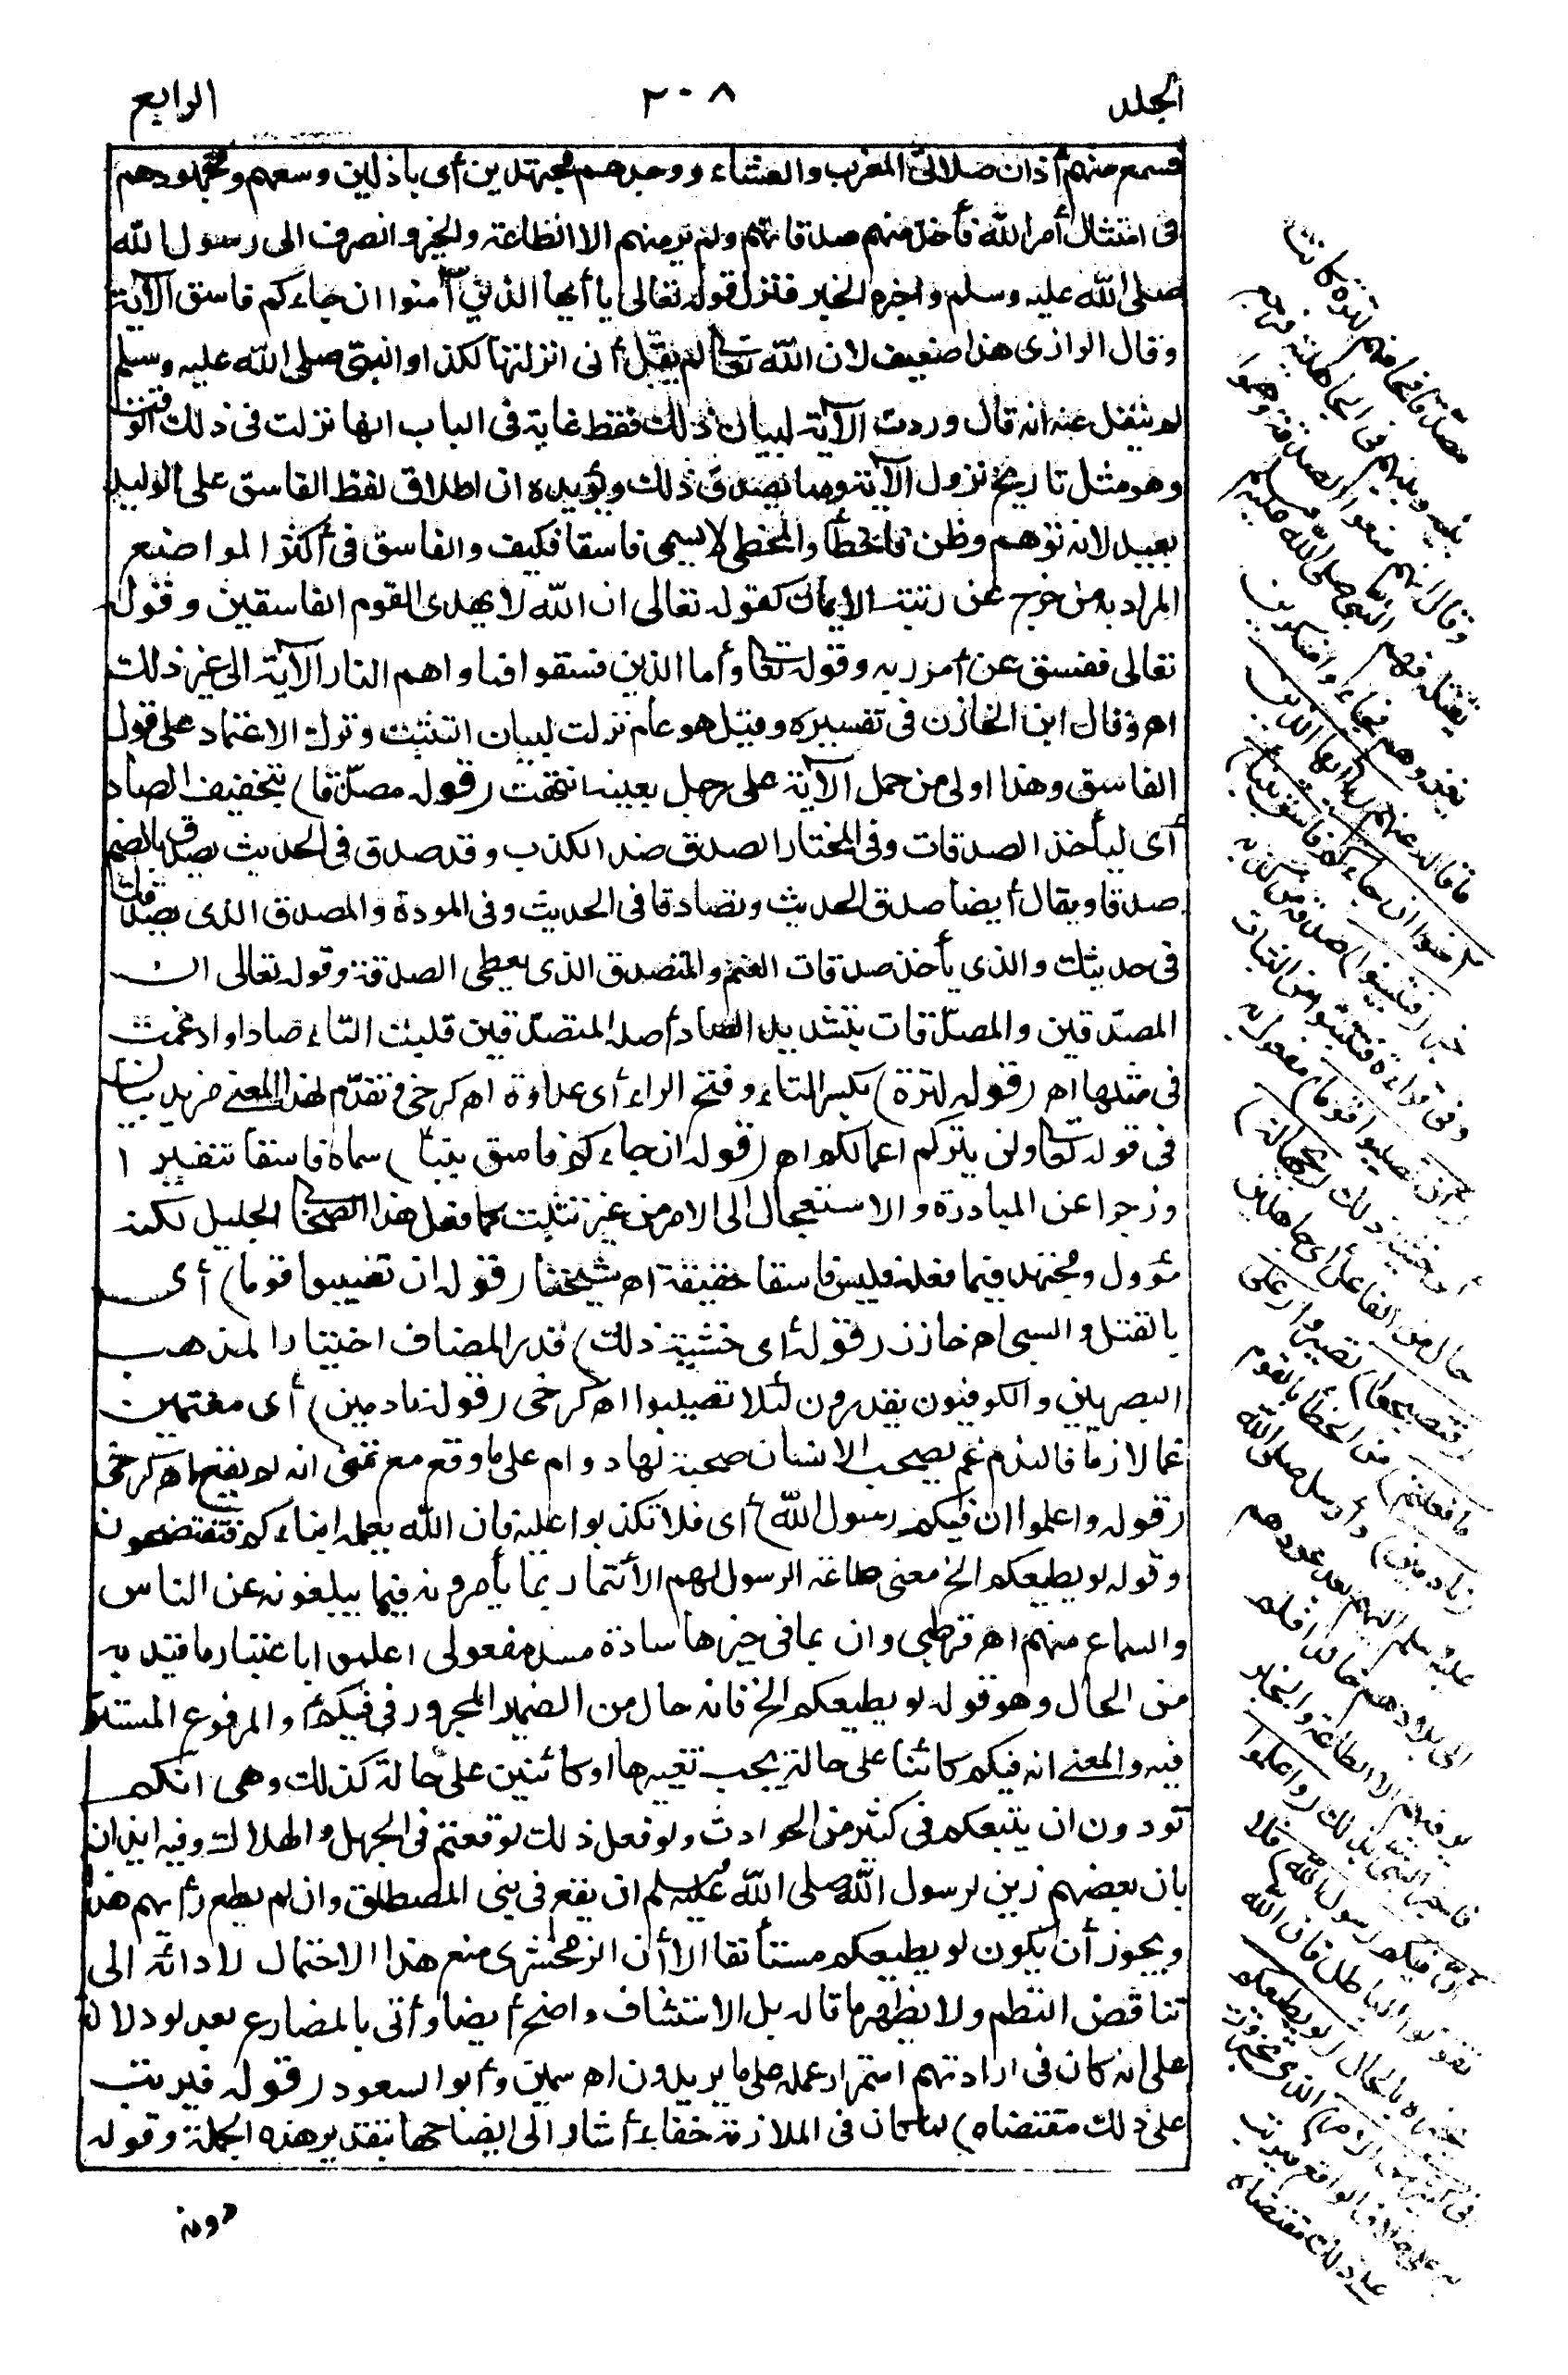 الجلد
٢٠٨
الرابع
فسمع منهم أذان صلاتى المغرب والعشاء ووجدهم مجتهدين أى باذلين وسعهم ومجهودهم
فى امتثال أمر الله فأخذ منهم صدقاتهم ولم ير منهم الا الطاعة والخير وانصرف الى رسول الله
صلى الله عليه وسلم واخبره الخبر فنزل قوله تعالى يا أيها الذين آمنوا ان جاءكم فاسق الآية
وقال الرازى هذا ضعيف لان الله تعالى لم يقل أنى انزلتها لكذا والنبى صلى الله عليه وسلم
لم ينقل عنه انه قال وردت الآية لبيان ذلك فقط غاية فى الباب انها نزلت فى ذلك الوقت
وهو مثل تاريخ نزول الآية ومما يصدق ذلك ويؤيده ان اطلاق لفظ الفاسق على الوليد
بعيد لانه توهم وظن فاخطأ والمخطى لا يسمى فاسقا فكيف والفاسق فى أكثر المواضع
المراد به من خرج عن رتبة الايمان كقوله تعالى ان الله لا يهدى القوم الفاسقين وقوله
تعالى ففسق عن أمر ربه وقوله تعالى وأما الذين فسقوا فماواهم النار الآية الى غير ذلك
اه وقال ابن الخازن فى تفسيره وقيل هو عام نزلت لبيان التثبت وترك الاعتماد على قول
الفاسق وهذا اولى من حمل الآية على رجل بعينه انتهت (قوله مصدقا) بتخفيف الصاد
أى ليأخذ الصدقات وفى المختار الصدق ضد الكذب وقد صدق فى الحديث يصدق بالضم
صدقا ويقال أيضا صدق الحديث وتصادقا فى الحديث وفى المودة والمصدق الذى يصدقك
فى حديثك والذى يأخذ صدقات الغنم والمتصدق الذى يعطى الصدقة وقوله تعالى ان
المصدقين والمصدقات بتشديد الصاد أصله المتصدقين قلبت التاء صادا وادغمت
فى مثلها اه (قوله لترة) بكسر التاء وفتح الراء أى عداوة اه كرخى وتقدم لهذا المعنى مزيد بيان
فى قوله تعالى ولن يتركم اعمالكم اه (قوله ان جاءكم فاسق بنبا) سماه فاسقا تنفيرا
وزجرا عن المبادرة والاستعجال الى الامر من غير تثبت كما فعل هذا الصحابى الجليل لكنه
مؤول ومجتهد فيما فعله فليس فاسقا حقيقة اه شيخنا (قوله ان تصيبوا قوما) أى
بالقتل والسبى اه خازن (قوله أى خشية ذلك) قدر المضاف اختيارا لمذهب
البصريين والكوفيون يقدرون لئلا تصيبوا اه كرخى (قوله نادمين) أى مغتمين
غما لازما فالندم غم يصحب الانسان صحبة لها دوام على ما وقع مع تمنى انه لم يقع اه كرخى
(قوله واعلموا ان فيكم رسول الله) أى فلا تكذبوا عليه فان الله يعلمه انباءكم فتفتضحون
وقوله لو يطيعكم الخ معنى طاعة الرسول لهم الأتمار بما يأمرونه فيما يبلغونه عن الناس
والسماع منهم اه قرطبى وان بما فى حيزها سادة مسد مفعولى اعلموا باعتبار ما قيد به
من الحال وهو قوله لو يطيعكم الخ فانه حال من الضمير المجرور فى فيكم أو المرفوع المستتر
فيه والمعنى انه فيكم كائنا على حالة يجب تغييرها او كائنين على حالة كذلك وهى انكم
تودون ان يتبعكم فى كثير من الحوادث ولو فعل ذلك لوقعتم فى الجهل والهلاك وفيه ايذان
بان بعضهم زين لرسول الله صلى الله عليه وسلم ان يقع فى بنى المصطلق وان لم يطع رأيهم هذا
ويجوز أن يكون لو يطيعكم مستأنفا الا أن الزمخشرى منع هذا الاحتمال لادائه الى
تنافض النظم ولا يظهر ما قاله بل الاستئناف واضح أيضا وأتى بالمضارع بعد لو دلالة
على انه كان فى ارادتهم استمرار عمله على ما يريدون اه سمين وأبو السعود (قوله فيرتب
على ذلك مقتضاه) لما كان فى الملازمة خفاء أشار الى ايضاحها بتقدير هذه الجملة وقوله
دونه
مصدقا فخافهم لترة كانت
بينه وبينهم فى الجاهلية فرجع
وقال انهم منعوا الصدقة وهموا
بقتله فهم النبى صلى الله عليه وسلم
بغزوهم فجاءوا منكرين
ما قاله عنهم (يا أيها الذين
آمنوا ان جاءكم فاسق بنبا)
خبر (فتبينوا) صدقه من كذبه
وفى قراءة فتثبتوا من الثبات
(أن تصيبوا قوما) مفعول له
أى خشية ذلك (بجهالة)
حال من الفاعل أى جاهلين
(فتصبحوا) تصيروا (على
ما فعلتم) من الخطأ بالقوم
(نادمين) وأرسل صلى الله
عليه وسلم اليهم بعد عودهم
الى بلادهم خالدا فلم
ير فيهم الا الطاعة والخير
فاخبر النبى بذلك (واعلموا
ان فيكم رسول الله) فلا
تقولوا الباطل فان الله
يخبره بالحال (لو يطيعكم
فى كثير من الامر) الذى تخبرون
به على خلاف الواقع فيرتب
على ذلك مقتضاه